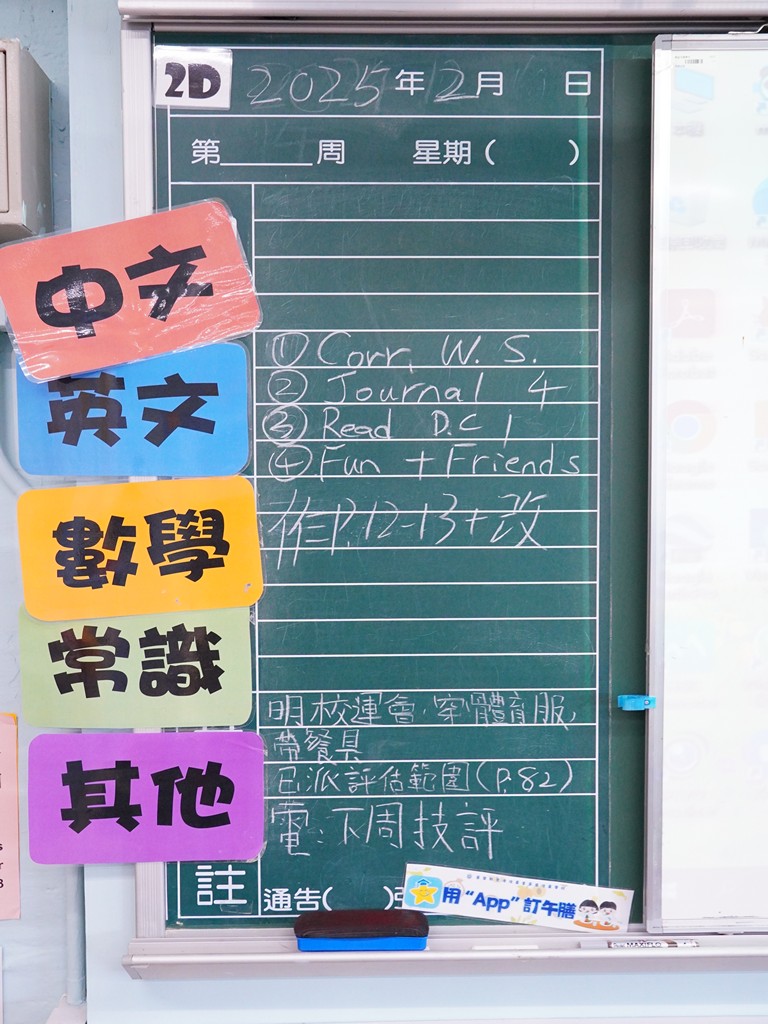 2D 2025年2月 日
第 周 星期( )
中文
① Corr. W. S.
② Journal 4
英文
③ Read D.C 1
④ Fun + Friends
數學
作P.12-13+改
常識
明校運會,穿體育服,
帶餐具
其他
已派評估範圍(P.82)
電:下周技評
註 通告( )
用“App”訂午膳